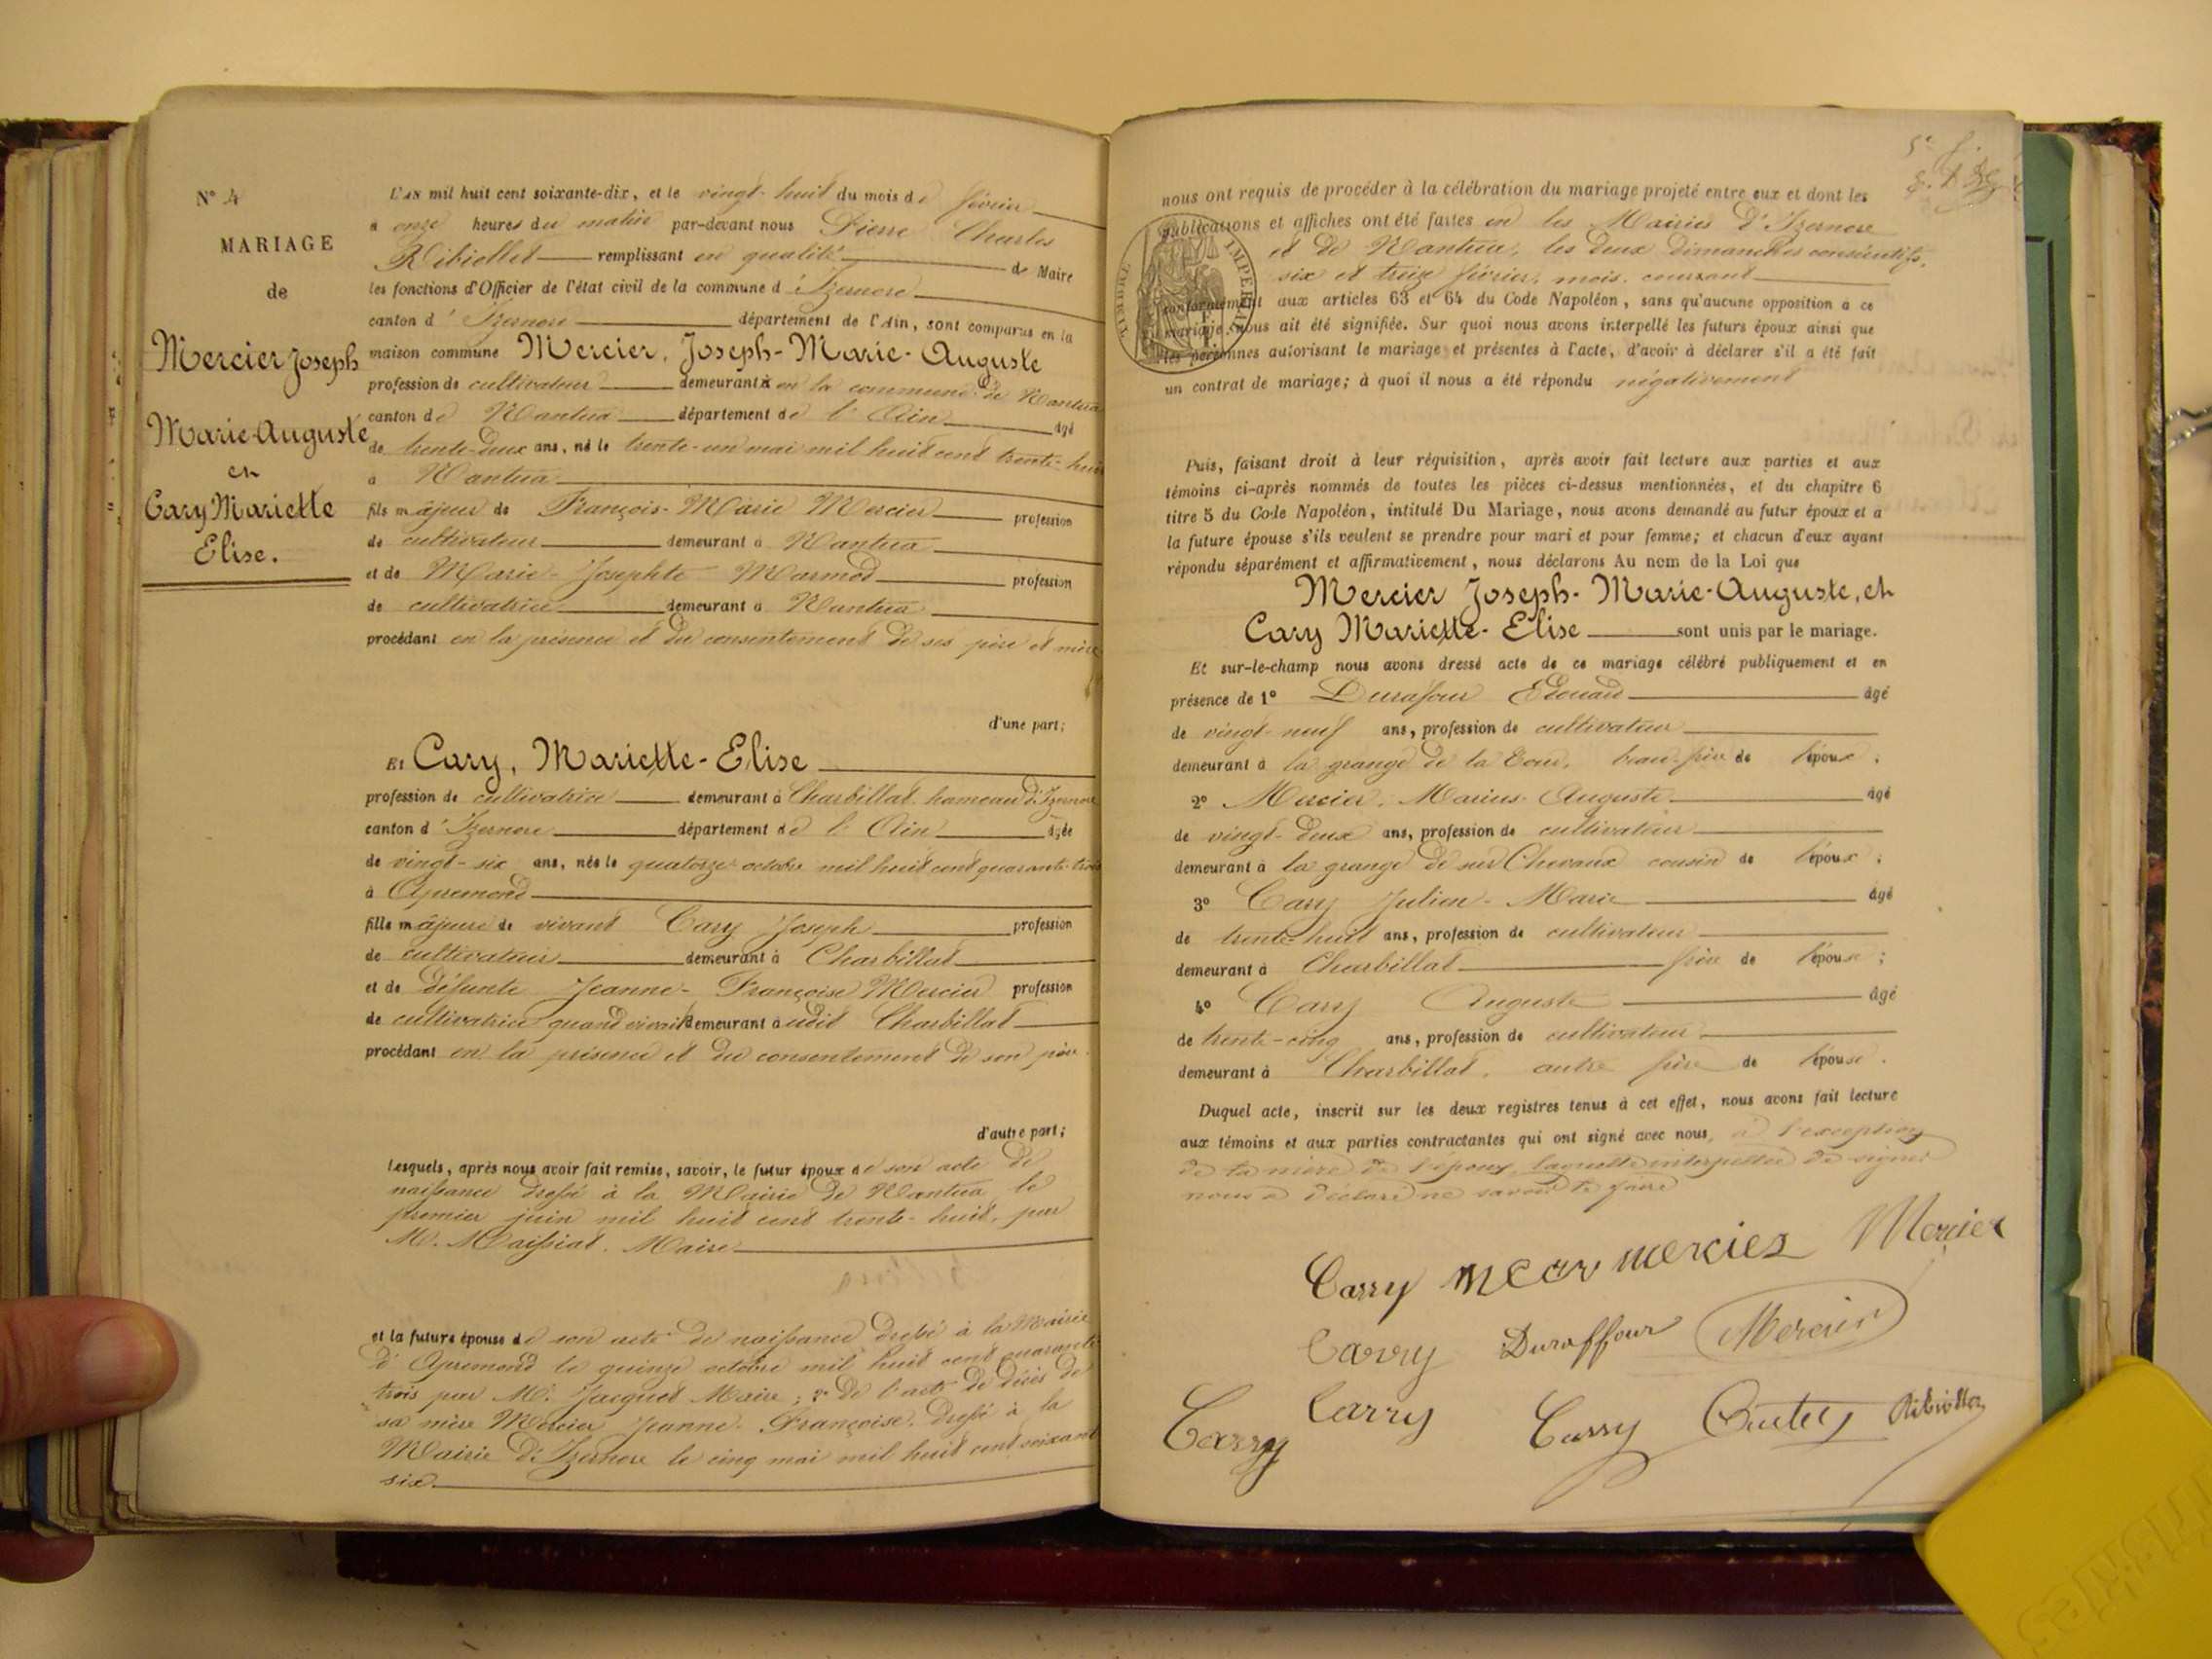 N° 4
MARIAGE
de
Mercier Joseph
Marie-Auguste
et
Cary Mariette
Elise.
L'AN mil huit cent soixante-dix, et le vingt-huit du mois de février
à onze heures du matin par-devant nous Pierre Charles
Ribiollet remplissant en qualité de Maire
les fonctions d'Officier de l'état civil de la commune d'Izernore
canton d'Izernore département de l'Ain, sont comparus en la
maison commune Mercier, Joseph-Marie-Auguste
profession de cultivateur demeurant en la commune de Nantua
canton de Nantua département de l'Ain âgé
de trente-deux ans, né le trente-un mai mil huit cent trente-huit
à Nantua
fils majeur de François-Marie Mercier profession
de cultivateur demeurant à Nantua
et de Marie-Josephte Marmod profession
de cultivatrice demeurant à Nantua
procédant en la présence et du consentement de ses père et mère
d'une part;
Et Cary, Mariette-Elise
profession de cultivatrice demeurant à Charbillat hameau d'Izernore
canton d'Izernore département de l'Ain âgée
de vingt-six ans, née le quatorze octobre mil huit cent quarante-trois
à Apremond
fille majeure de vivant Cary Joseph profession
de cultivateur demeurant à Charbillat
et de défunte Jeanne-Françoise Mercier profession
de cultivatrice quand vivait demeurant audit Charbillat
procédant en la présence et du consentement de son père.
d'autre part;
Lesquels, après nous avoir fait remise, savoir, le futur époux de son acte de
naissance dressé à la Mairie de Nantua le
premier juin mil huit cent trente-huit, par
M. Maissiat, Maire
et la future épouse de son acte de naissance dressé à la Mairie
d'Apremond le quinze octobre mil huit cent quarante
trois par M. Jacquet Maire; 2° de l'acte de décès de
sa mère Mercier Jeanne-Françoise, dressé à la
Mairie d'Izernore le cinq mai mil huit cent soixante
six.
nous ont requis de procéder à la célébration du mariage projeté entre eux et dont les
publications et affiches ont été faites en les Mairies d'Izernore
et de Nantua, les deux dimanches consécutifs,
six et treize février, mois courant
conformément aux articles 63 et 64 du Code Napoléon, sans qu'aucune opposition à ce
mariage nous ait été signifiée. Sur quoi nous avons interpellé les futurs époux ainsi que
les personnes autorisant le mariage et présentes à l'acte, d'avoir à déclarer s'il a été fait
un contrat de mariage; à quoi il nous a été répondu négativement
TIMBRE IMPERIAL
Puis, faisant droit à leur réquisition, après avoir fait lecture aux parties et aux
témoins ci-après nommés de toutes les pièces ci-dessus mentionnées, et du chapitre 6
titre 5 du Code Napoléon, intitulé Du Mariage, nous avons demandé au futur époux et à
la future épouse s'ils veulent se prendre pour mari et pour femme; et chacun d'eux ayant
répondu séparément et affirmativement, nous déclarons Au nom de la Loi que
Mercier Joseph-Marie-Auguste, et
Cary Mariette-Elise sont unis par le mariage.
Et sur-le-champ nous avons dressé acte de ce mariage célébré publiquement et en
présence de 1° Durafour Edouard âgé
de vingt-neuf ans, profession de cultivateur
demeurant à la grange de la beau-frère de l'époux;
2° Mercier, Marius-Auguste âgé
de vingt-deux ans, profession de cultivateur
demeurant à la grange de cousin de l'époux;
3° Cary Julien-Marie âgé
de trente-huit ans, profession de cultivateur
demeurant à Charbillat frère de l'épouse;
4° Cary Auguste âgé
de trente-cinq ans, profession de cultivateur
demeurant à Charbillat, autre frère de l'épouse.
Duquel acte, inscrit sur les deux registres tenus à cet effet, nous avons fait lecture
aux témoins et aux parties contractantes qui ont signé avec nous, à l'exception
de la mère de l'époux, laquelle interpellée de signer
nous a déclaré ne savoir le faire
Carry mercier Mercier
Carry Duraffour Mercier
Carry Carry Carry Ribiollet